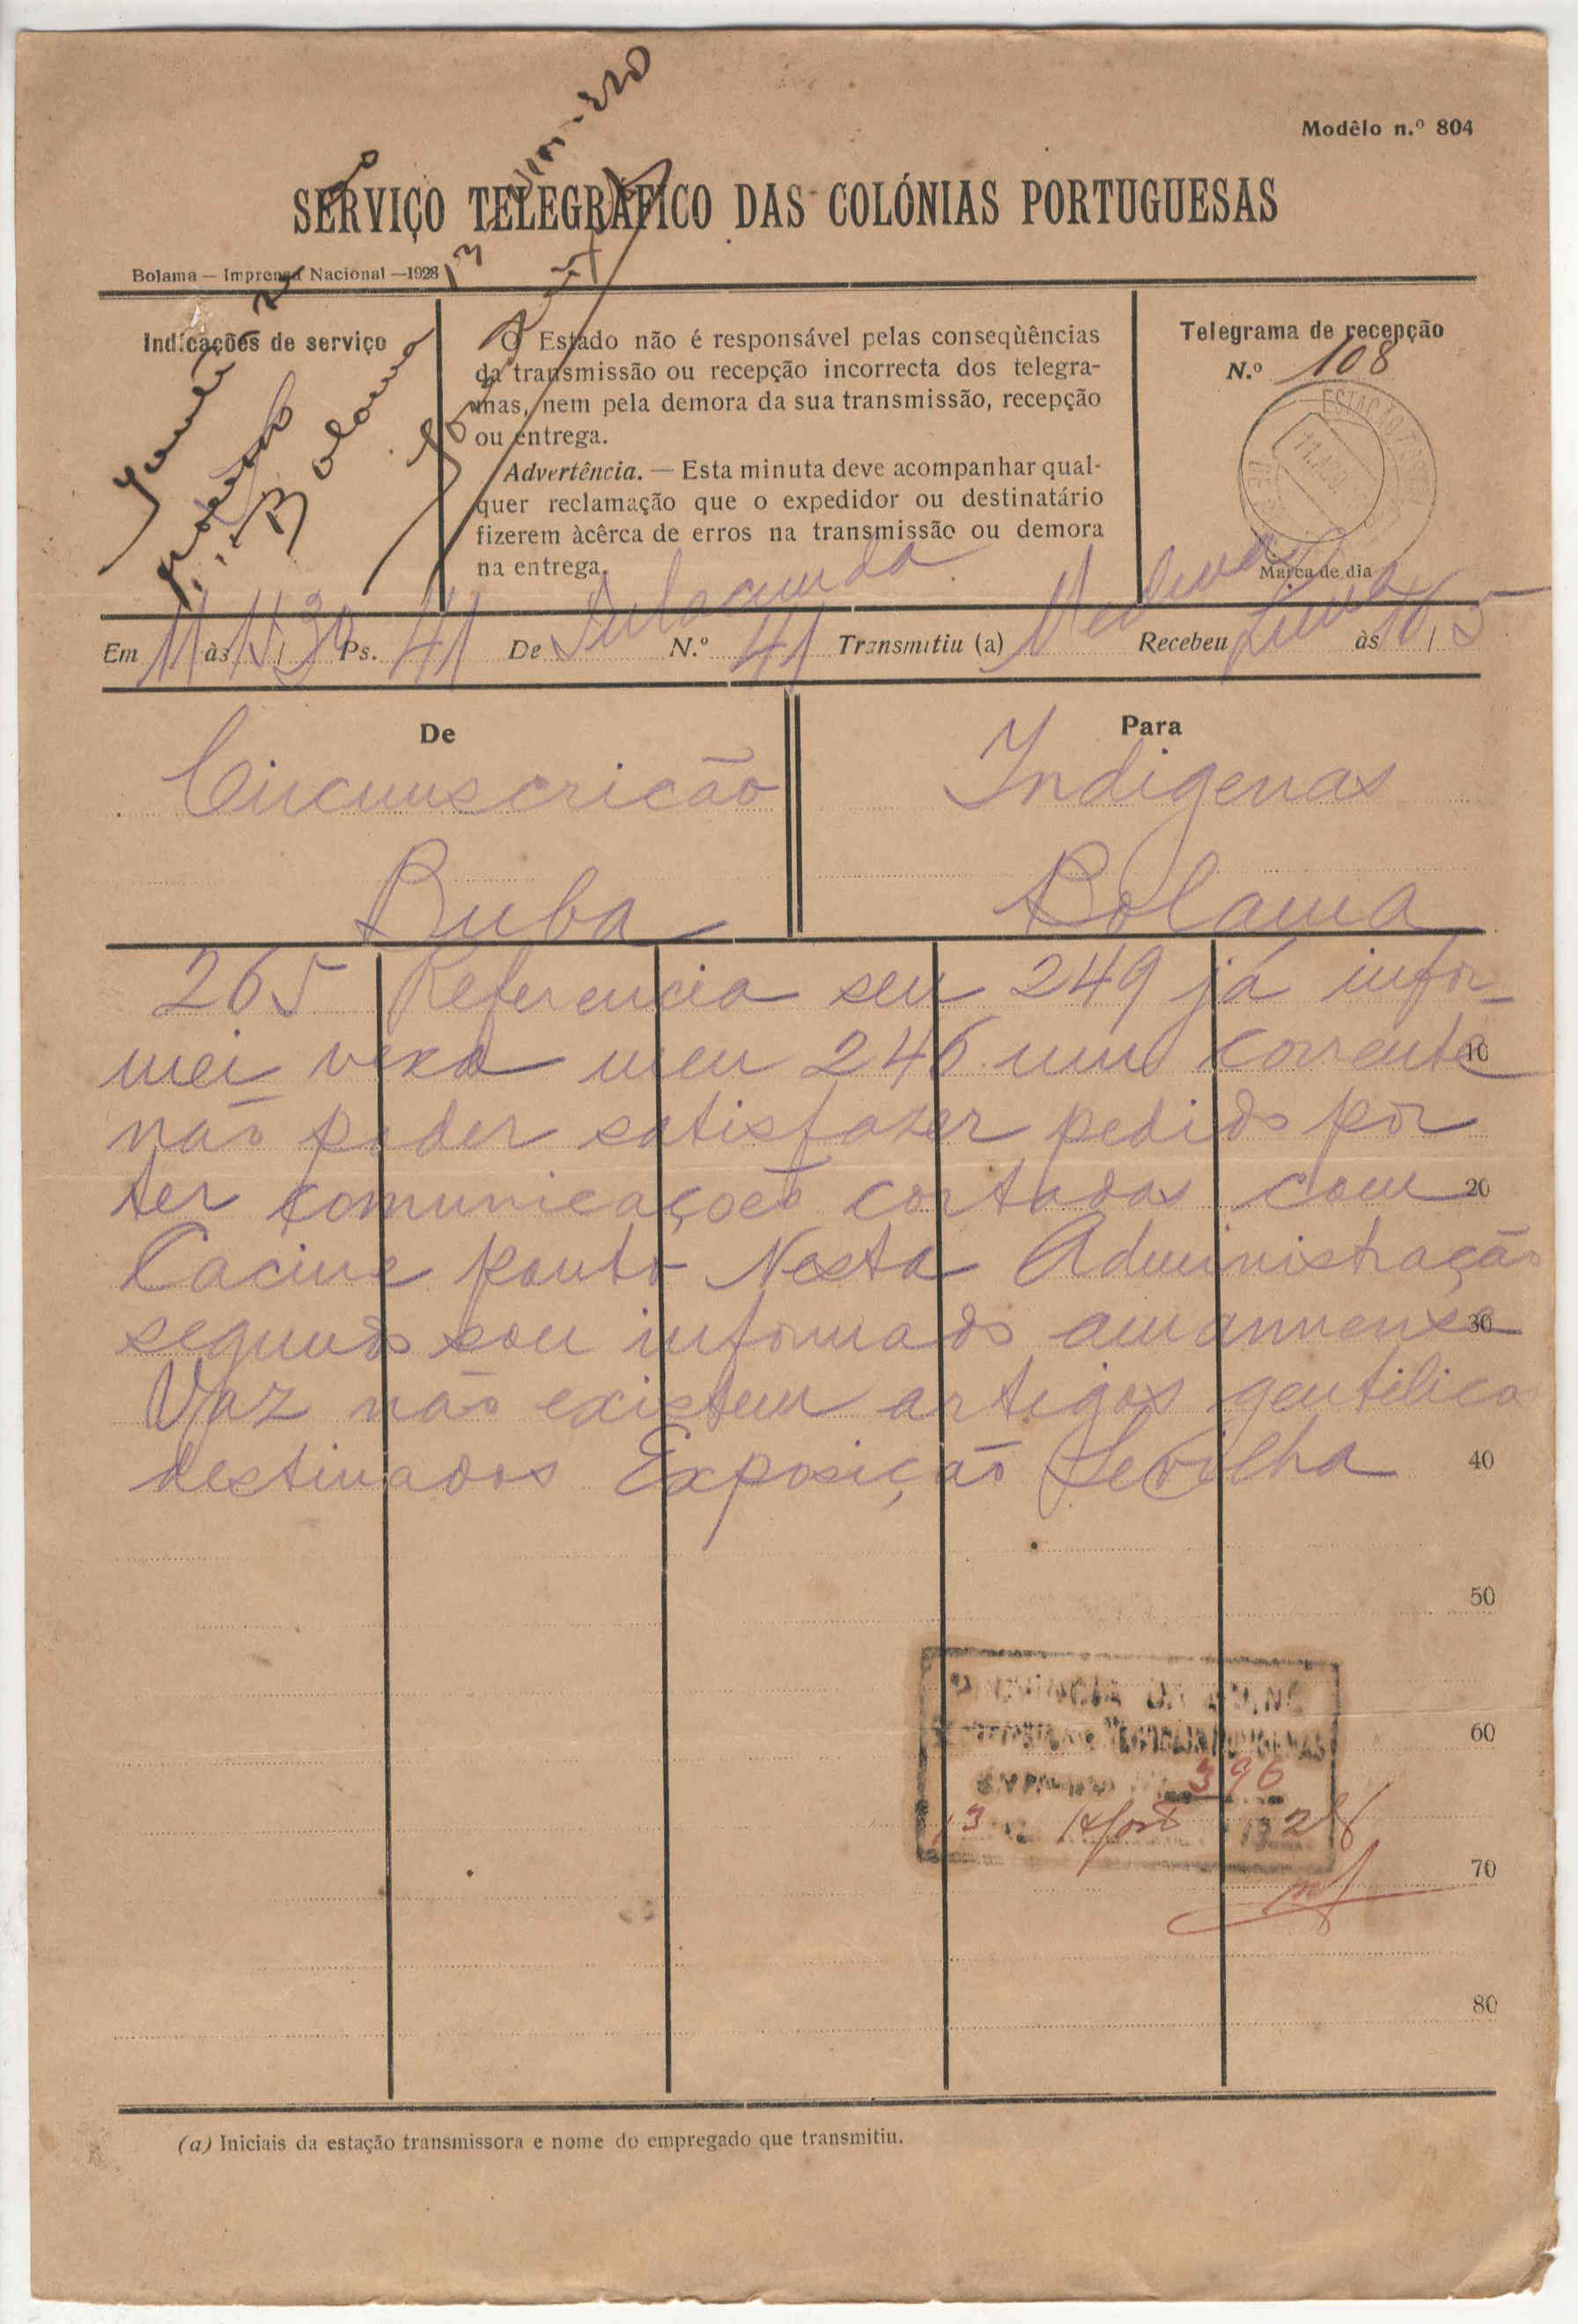 Modêlo n.º 804
SERVIÇO TELEGRÁFICO DAS COLÓNIAS PORTUGUESAS
Bolama — Imprensa Nacional — 1928
Indicações de serviço
O Estado não é responsável pelas conseqùências
da transmissão ou recepção incorrecta dos telegra-
mas, nem pela demora da sua transmissão, recepção
ou entrega.
Advertência. — Esta minuta deve acompanhar qual-
quer reclamação que o expedidor ou destinatário
fizerem àcêrca de erros na transmissão ou demora
na entrega.
Telegrama de recepção
N.º 108
Marca de dia
Bolama
Em 11 às 15/30 Ps. 41 De Fulacunda N.º 41 Transmitiu (a) Recebeu Lima às 16/5
De
Circunscrição
Buba
Para
Indigenas
Bolama
265 Referencia seu 249 já infor-
mei vexa meu 246 um corrente
não poder satisfazer pedido por
ter comunicações cortadas com
Cacine ponto Nesta Administração
segundo sou informado amanuense
Vaz não existem artigos gentilicos
destinados Exposição Sevilha
10
20
30
40
50
60
70
80
PROVINCIA DA GUINÉ
396
13 Agosto 1928
(a) Iniciais da estação transmissora e nome do empregado que transmitiu.